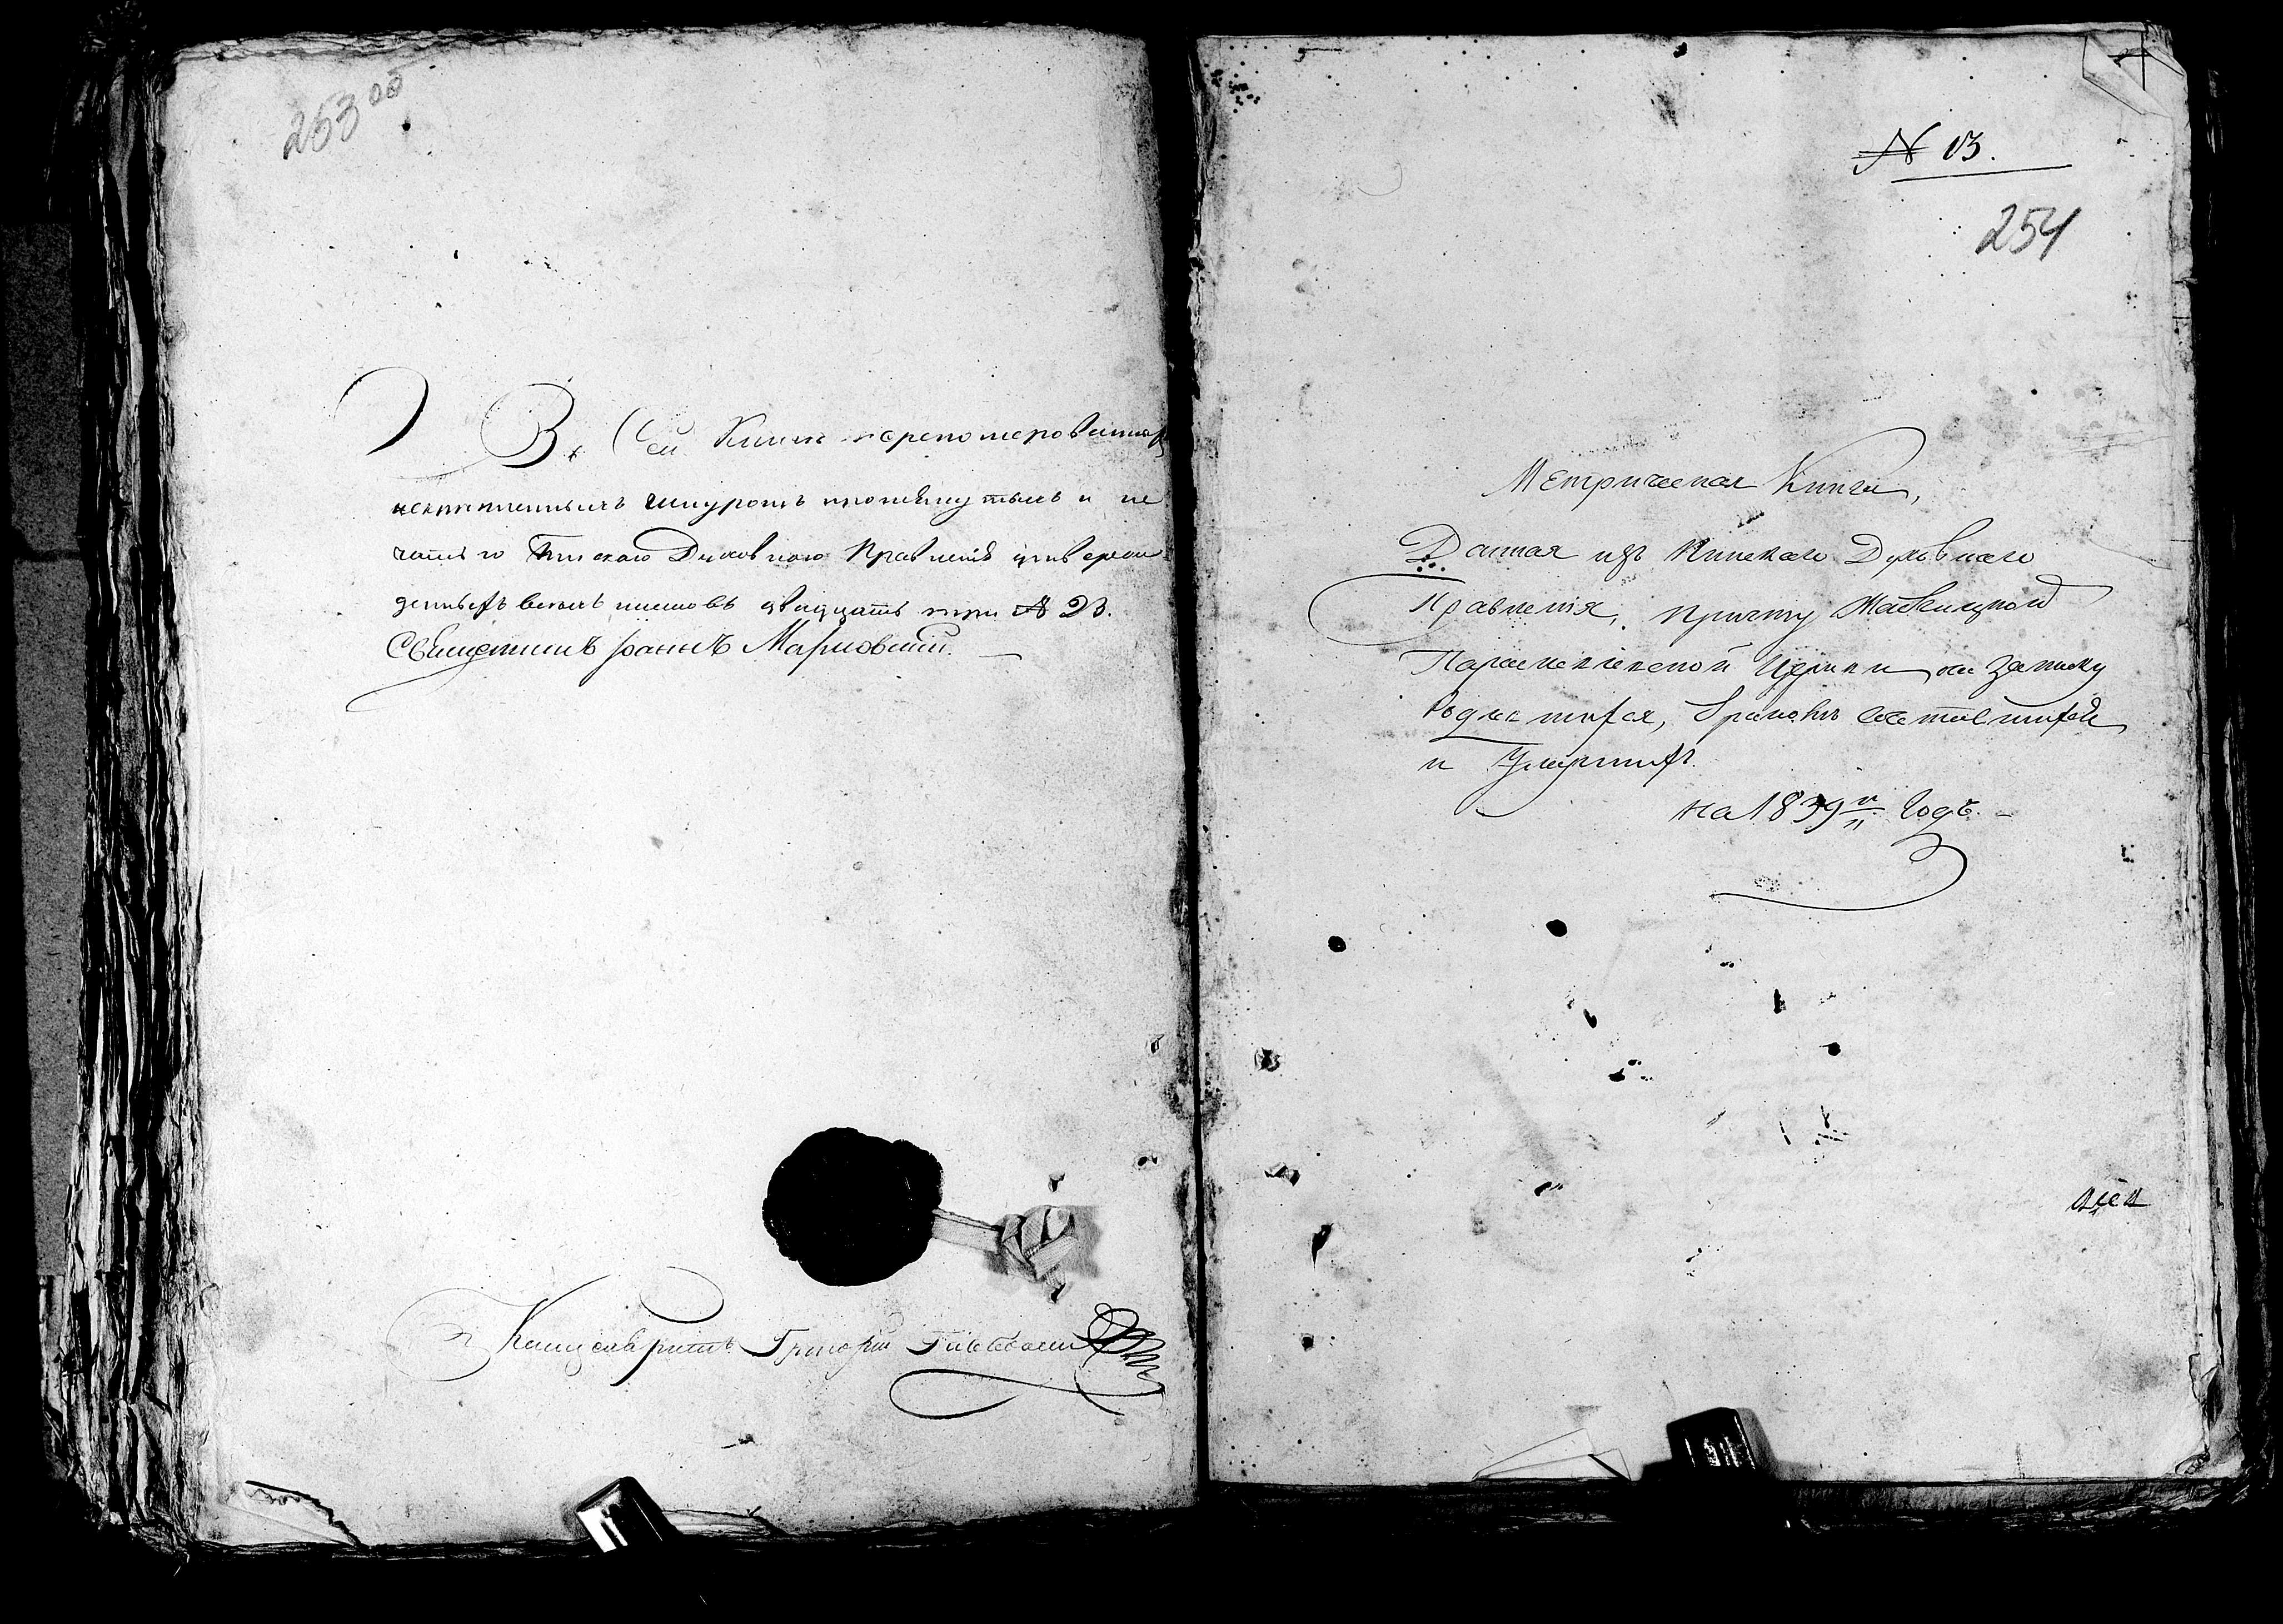 253 об
Въ Сей Книгѣ перенумерованныхъ
шнуромъ и пе
чатью Пинскаго Духовнаго Правленія утверж
денныхъ всѣхъ листовъ двадцать три № 23.
Священникъ Іоаннъ
Канцеляристъ Григорій
№ 13.
254
Метрическая Книга,
Данная изъ Пинскаго Духовнаго
Правленія, Причту
Параскевіевской Церкви на записку
Родившихся, Бракомъ сочетавшихся
и Умершихъ.
на 1839й Годъ.